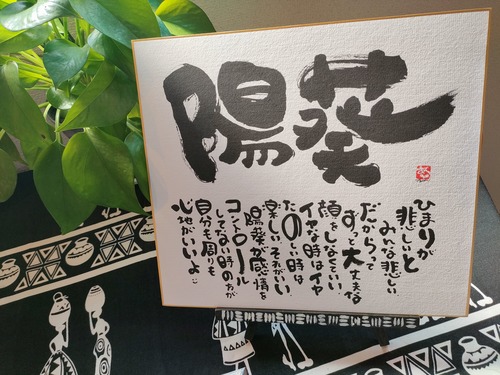 陽葵
ひまりが
悲しいと
みんな悲しい.
だからって
ずっと大丈夫な
顔をしなくていい.
イヤな時はイヤ
たのしい時は
楽しい.それがいい.
陽葵が感情を
コントロール
してない時の方が
自分も周りも
心地がいいよ